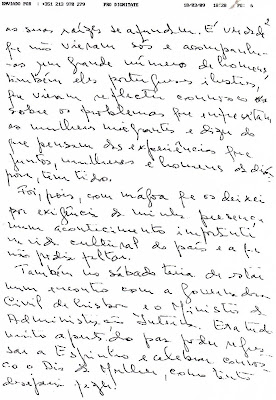 ENVIADO POR : +351 213 970 279 PRO DIGNITATE 10/03/09 18:28 Pg: 6
2
as suas raízes se afundam. É verdade
que não vieram sós e acompanha-
as um grande número de homens
também eles portugueses ilustres,
que vieram reflectir connosco
sobre os problemas que enfrentam
as mulheres migrantes e dizer do
que pensam das experiências que
juntos, mulheres e homens da diás-
pora, têm tido.
Foi, pois, com mágoa que os deixei
por exigência da minha presença
num acontecimento importante
na vida cultural do país e a que
não podia faltar.
Também no sábado teria de estar
num encontro com a Governadora
Civil de Lisboa e o Ministro da
Administração Interna. Era tudo
muito apertado para poder regres-
sar a Espinho e celebrar connos-
co o Dia da Mulher, como tanto
desejaria fazer.